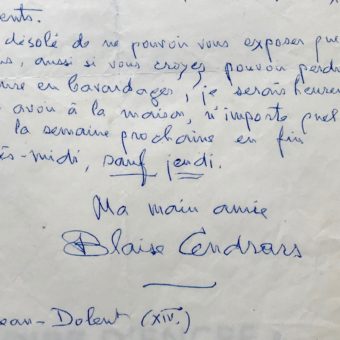 ents.
désolé de ne pouvoir vous exposer que
s, aussi si vous croyez pouvoir perdre
ure en bavardages, je serais heureu
avoir à la maison, n'importe quel
la semaine prochaine en fin
ès-midi, sauf jeudi.
Ma main amie
Blaise Cendrars
ean-Dolent (XIV.)